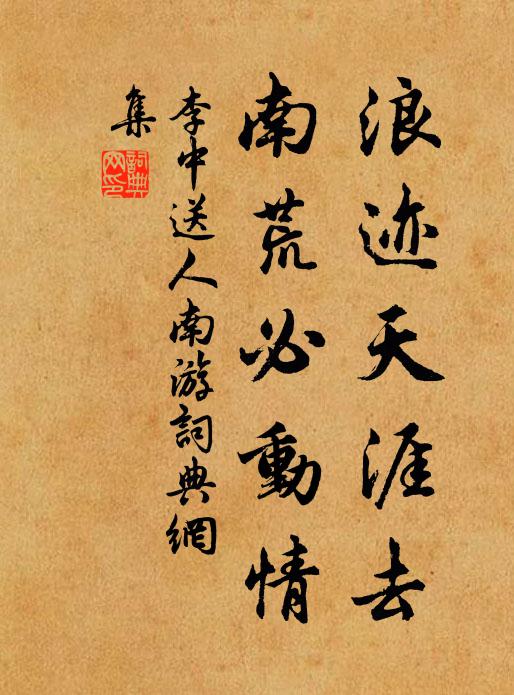 浪迹天涯去
南荒必動情
李中送人南游詞典網
集
詞典网印